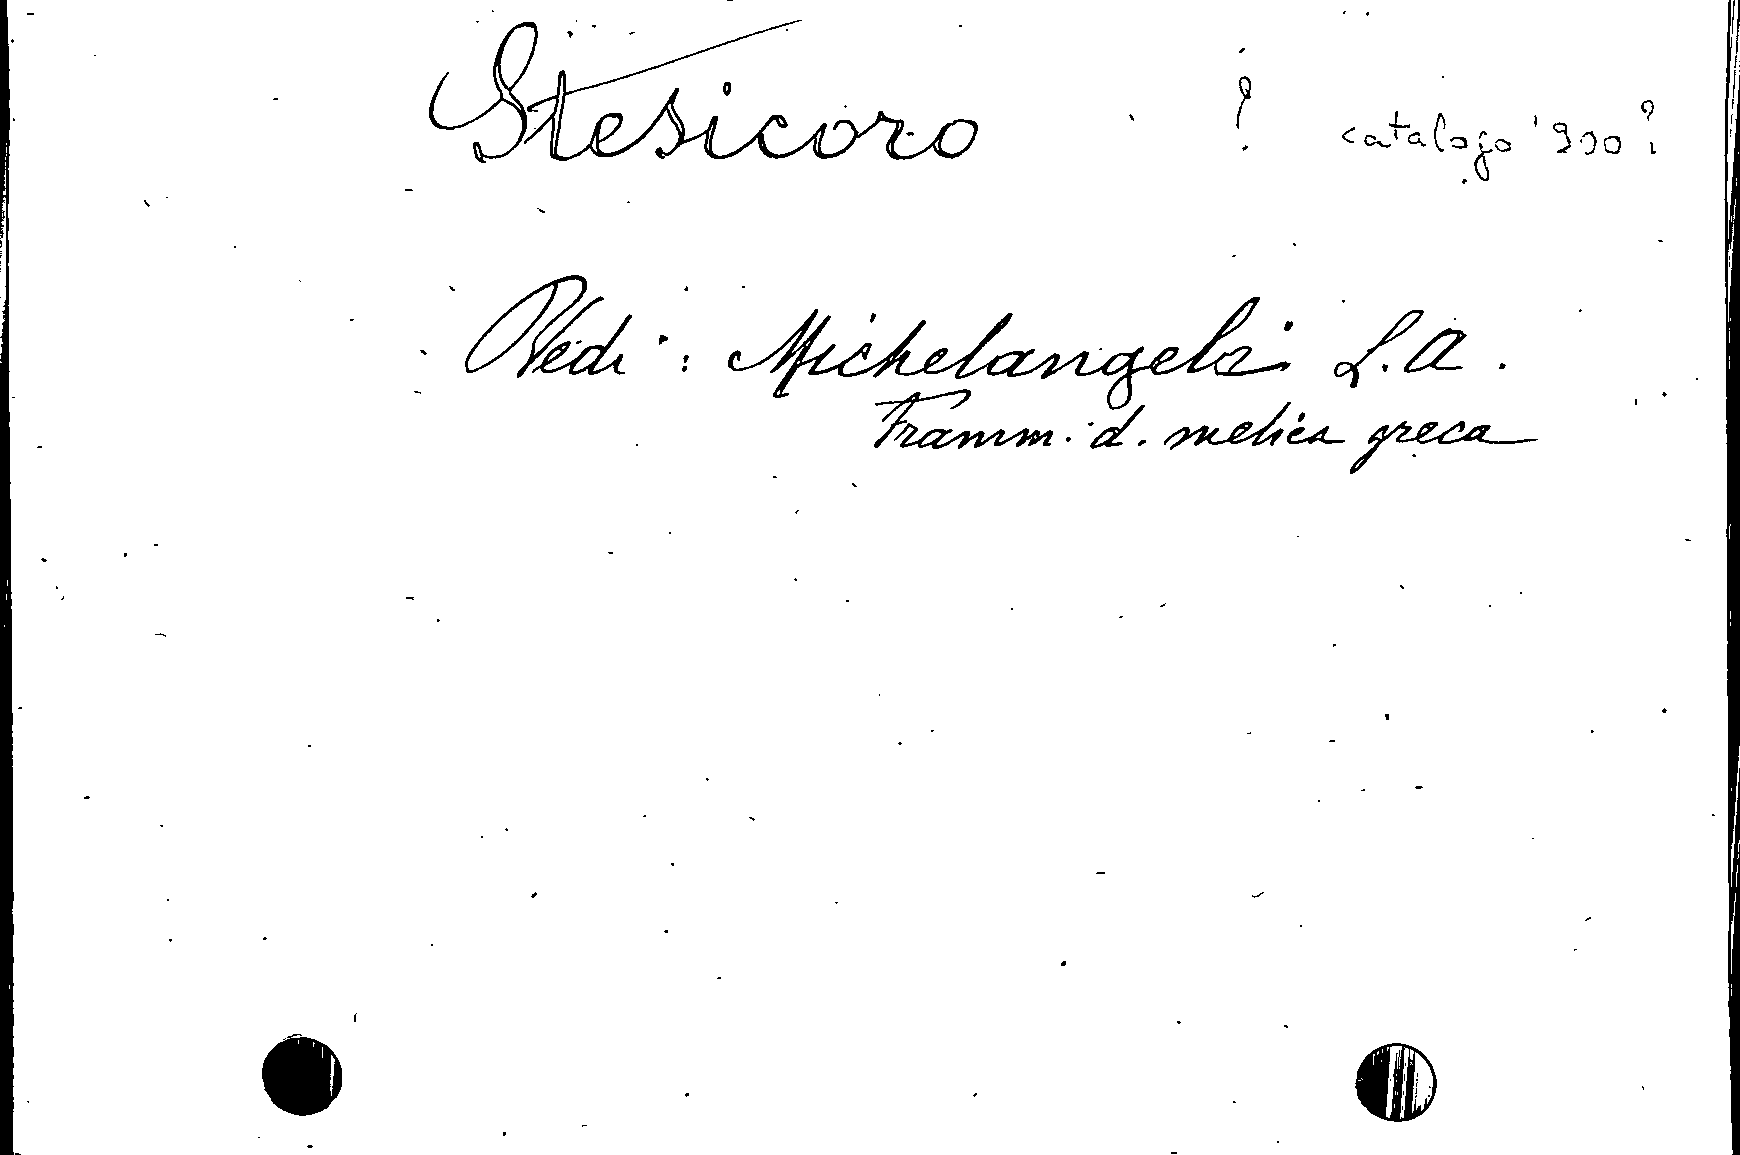 Stesicoro ? catalogo '900?
Vedi: Michelangeli L. A.
Framm. d. melica greca